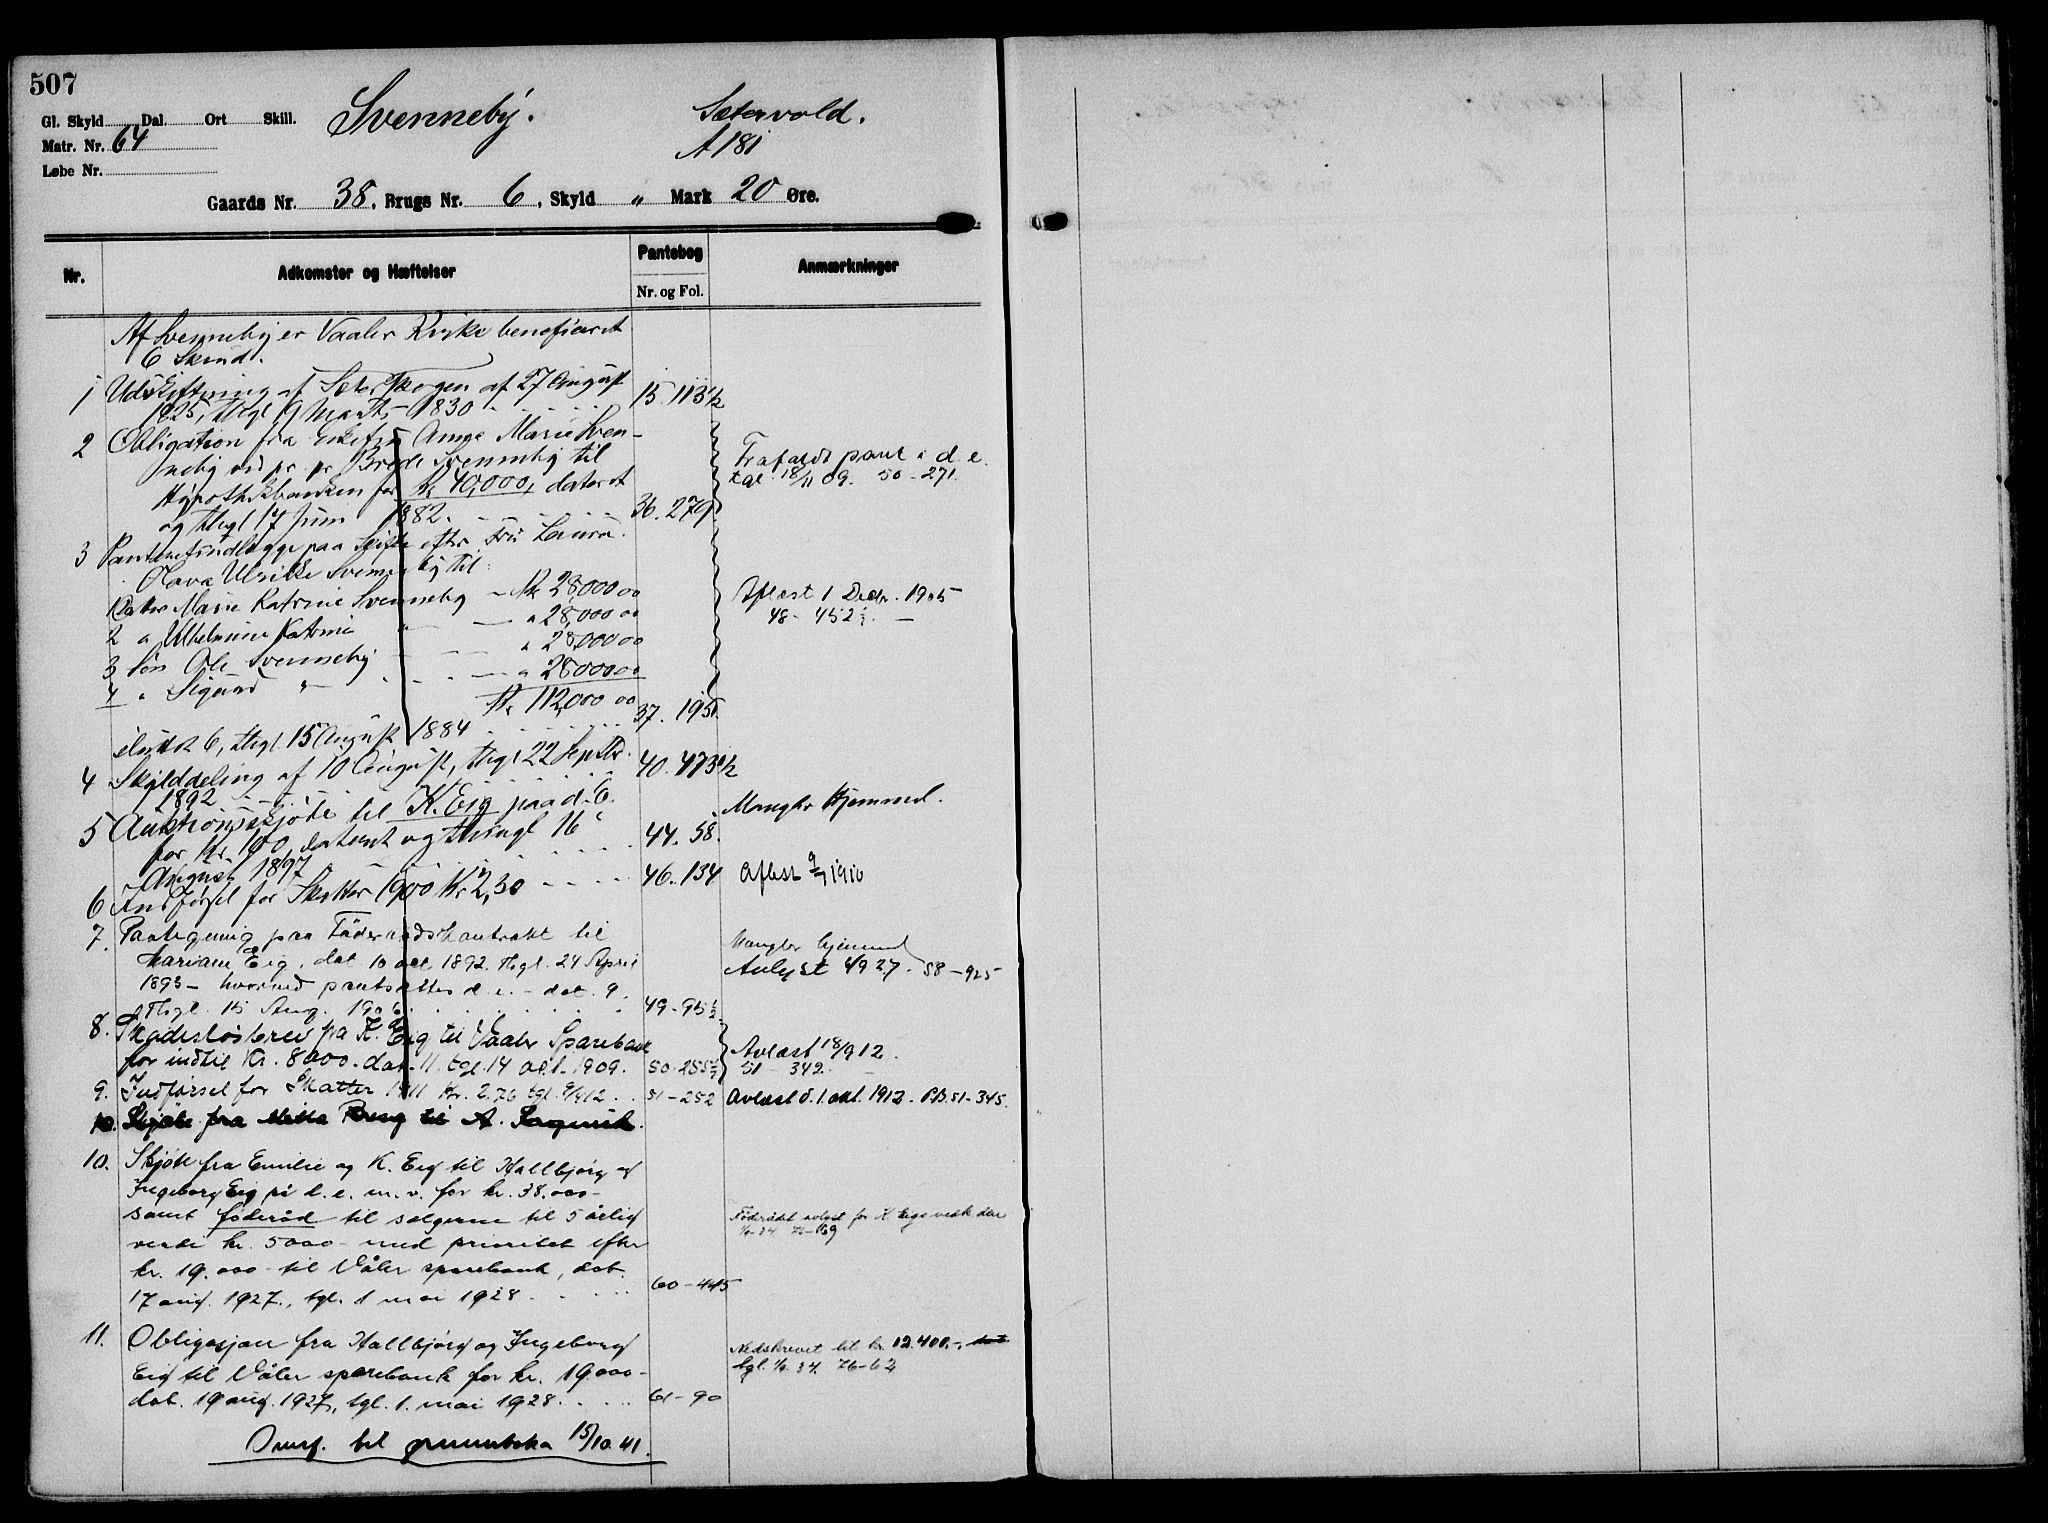 507
Gl. Skyld Dal. Ort Skill. Svenneby. Sætervold.
Matr. Nr. 64 A 181
Løbe Nr.
Gaards Nr. 38, Brugs Nr. 6, Skyld " Mark 20 Øre.
Nr. Adkomster og Hæftelser Pantebog Nr. og Fol. Anmærkninger
Af Svenneby er Vaaler Kirke beneficeret
6 Skind.
1 Udskiftning af Sæterskogen af 27 August
1825, thgl 9 Marts 1830 15. 113½
2 Obligation fra Enkefru Anne Marie Sven-
neby ved pr. pr. Brede Svenneby til
Hypothekbanken for Kr 40,000, dateret
og thgl 17 Juni 1882. 36. 279
Frafaldt pant i d. e.
tgl. 18/11 09. 50-271.
3 Panteudlægge paa Skifte efter Fru Laura
Olava Ulrikke Svenneby til:
Datter Marie Katrine Svenneby - Kr 28,000 00
2 " Vilhelmine Katrine " 28,000 00
3 Søn Ole Svenneby " 28,000 00
4 " Sigurd " " 28,000 00
Kr 112,000 00
sluttet 6, thgl. 15 August 1884 37. 195
Aflæst 1 Decbr. 1905
48 - 452½
4 Skylddeling af 10 August, thgl 22 Septbr.
1892 40. 473½
5 Auktionsskjøte til K. Eig paa d. E.
for Kr. 100, dateret og thingl 16
August 1897 44. 58.
Mangler Hjemmel.
6 Indførsel for Skatter 1900 Kr 2,30 46. 134 Aflæst 9/7 1910
7. Pantegjenvig paa Føderaadskontrakt til
Mariane Eig, dat 10 oct 1892. thgl. 24 April
1893 - hvorved pantsættes d. e. - dat. 9,
thgl. 15 Aug. 1906. 49-95½
Mangler hjemmel
Avlyst 1/9 27. 58-925
8. Skadesløsbrev fra K. Eig til Vaaler Sparebank
for indtil Kr. 8000. dat. 11. tgl. 14 okt. 1909. 50-255
Avlæst 18/9 12.
51 - 342.
9. Indførsel for Skatter 1911 Kr. 2.76 tgl. 9/4 12. 51-252 Avlæst d. 1. okt. 1912. P.B. 51-345.
10. Skjøte fra til A.
10. Skjøte fra Emilie og K. Eig til Hallbjørg og
Ingeborg Eig på d. e. m. v. for kr. 38.000-
samt føderåd til selgerne til 5 årlig
verdi kr. 5000 - med prioritet efter
kr. 19.000 til Våler sparebank, dat.
17 aug. 1927, tgl. 1 mai 1928 60-445
Föderådet avlyst for K Eigs vedk.
1/6-34 76-169
11. Obligasjon fra Hallbjørg og Ingeborg
Eig til Våler sparebank for kr. 19.000-
dat. 19 aug. 1927, tgl. 1. mai 1928. 61-90
Nedskrevet til kr. 12.400.-,
tgl. 1/6. 34. 76-62
Overf. til grunnboka 15/10. 41.